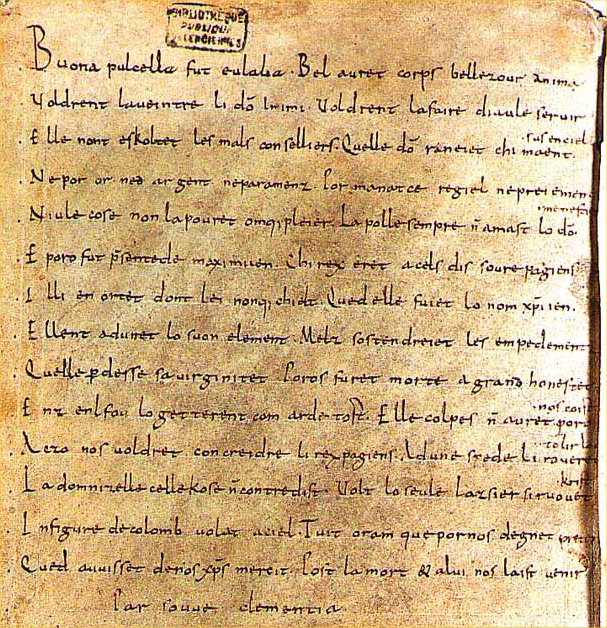 BIBLIOTHEQUE
PUBLIQUE
VALENCIENNES
Buona pulcella fut eulalia. Bel auret corps bellezour anima
Voldrent laveintre li dō inimi. Voldrent lafaire diaule servir
sus en ciel
Elle nont eskoltet les mals conselliers. Quelle dō raneiet chi maent.
Ne por or ned argent ne paramenz. Por manatce regiel ne preiement
meneſtr
Niule cose non la pouret omq̄ pleier. La polle sempre n̄ amast lo dō
E poro fut p̄sentede maximiien. Chi rex eret a cels dis soure pagiens
Illi en ortet dont lei nonq̄ chielt. Qued elle fuiet lo nom xp̄iien.
Ellent adunet lo suon element. Melz sostendreiet les empedementz
Quelle ꝑdesse sa virginitet. Poros furet morte a grand honestet
nos coist
Enz enl fou lo getterent com arde tost. Elle colpes n̄ auret por o
tolir lo
Aezo nos voldret concreidre li rex pagiens. Ad une spede li roveret
krist
La domnizelle celle kose n̄ contredist. Volt lo seule lazsier si ruovet
In figure de colomb volat a ciel. Tuit oram que por nos degnet preier
Qued auuisset de nos xp̄s mercit. Post la mort & a lui nos laist venir
Par souue clementia.